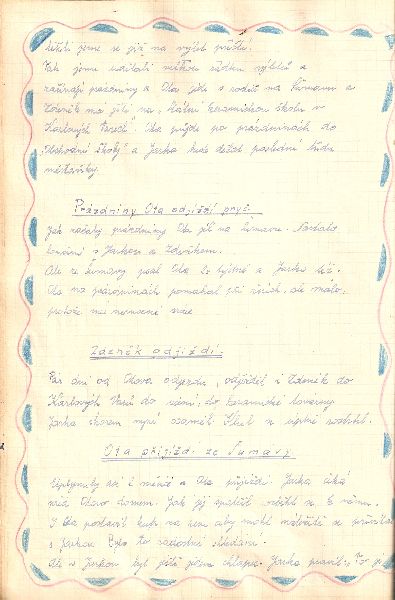 těšili jsme se již na výlet příští.
Tak jsme udělali velkou řádku výletů a
začínají prázdniny a Ota jede s rodiči na Šumavu a
Zdeněk má jíti na „Státní keramickou školu v
Karlových Varech". Ota půjde po prázdninách do
Obchodní školy a Jarka bude dělat poslední třídu
měšťanky.
Prázdniny Ota odjíždí pryč.
Jak začaly prázdniny Ota jel na Šumavu. Nastalo
loučení s Jarkou a Zdeňkem.
Ale ze Šumavy psal Ota 2x týdně a Jarka též.
Ota na prázdninách pomahal při žních, ale málo,
protože má nemocné srdce
Zdeněk odjíždí.
Pár dní od Otova odjezdu, odjíždět i Zdeněk do
Karlových Varů do učení, do keramické továrny
Jarka skoro nyní osaměl. Klub se úplně rozbíhl.
Ota přijíždí ze Šumavy
Uplynuly asi 2 měsíce a Ota přijíždí. Jarka čeká
před Otovo domem. Jak jej spatřil rozběhl se k němu.
I Ota postavil kufr na zem aby mohl
s Jarkou Bylo to radostné shledání.
Ale u Jarkou byl ještě jeden chlapec. Jarka pravil: „To je